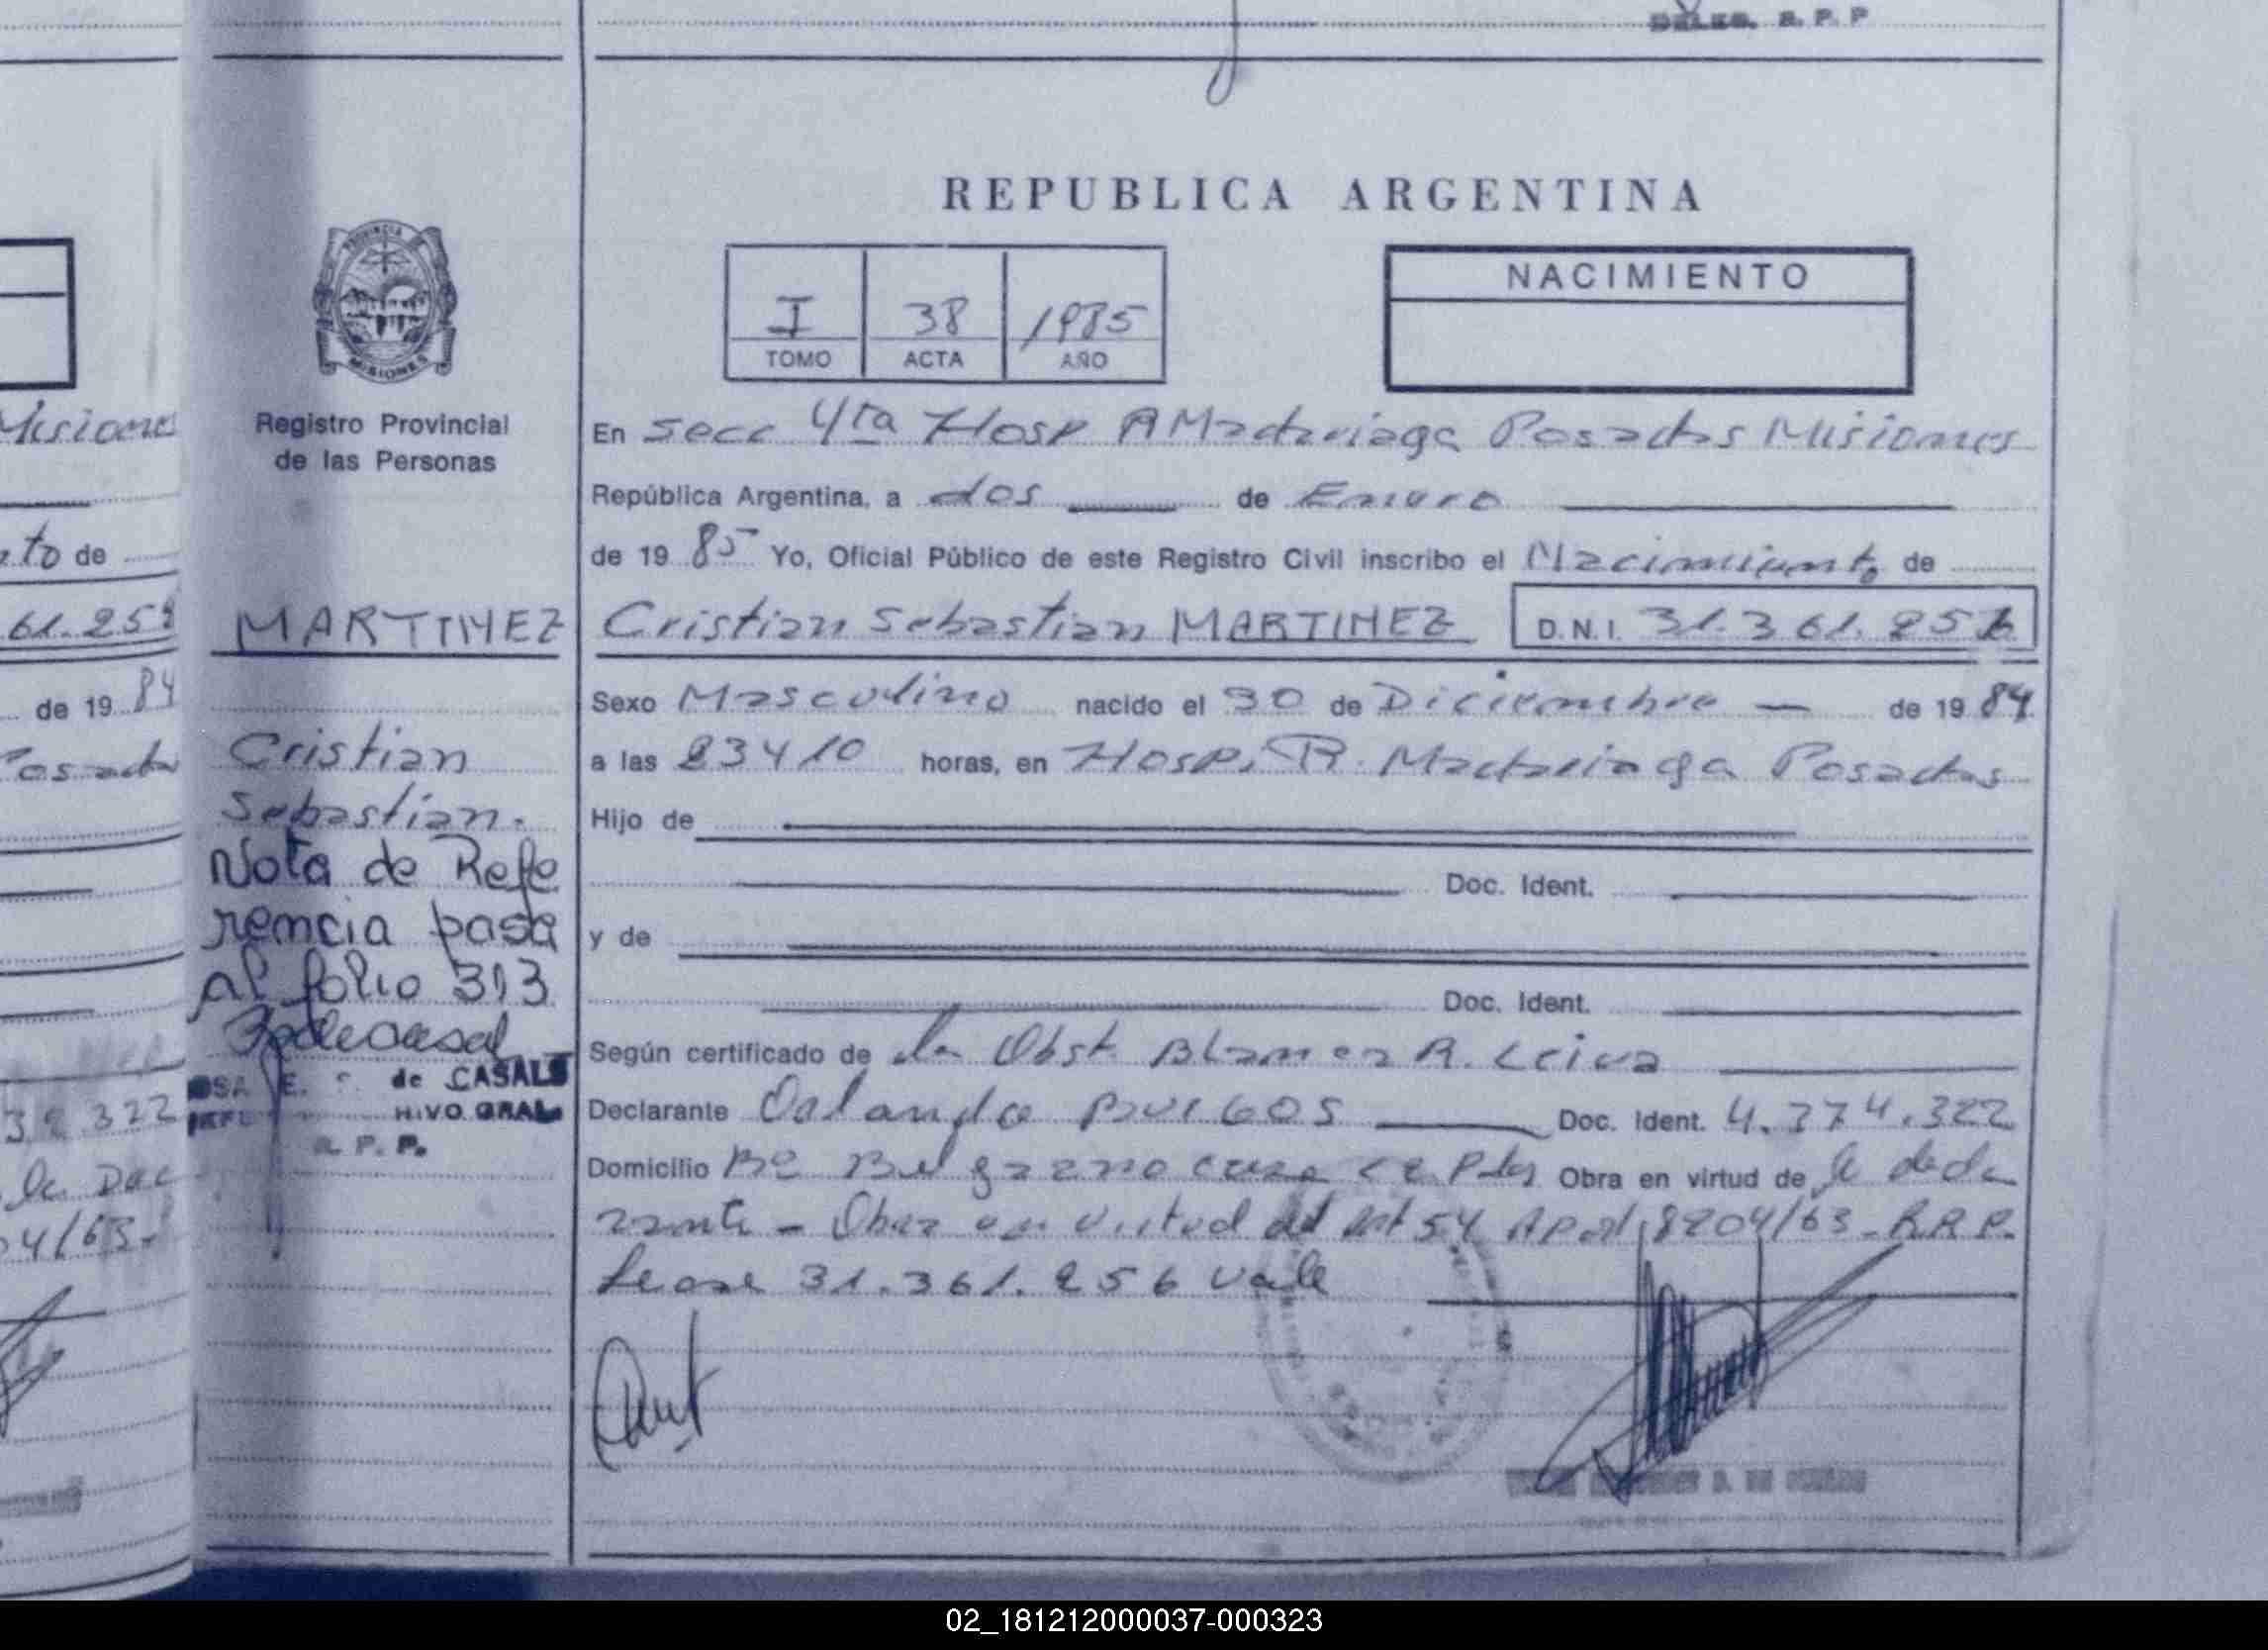 DELEG. R. P. P
REPUBLICA ARGENTINA
PROVINCIA DE
MISIONES
I 38 1985
TOMO ACTA AÑO
NACIMIENTO
Registro Provincial
de las Personas
En Secc 4ta Hosp R Madariaga Posadas Misiones
República Argentina, a dos de Enero
de 19 85 Yo, Oficial Público de este Registro Civil inscribo el Nacimiento de
Cristian Sebastian MARTINEZ D.N.I. 31.361.256
Sexo Masculino nacido el 30 de Diciembre — de 19 84
a las 23 y 10 horas, en Hosp. R. Madariaga Posadas
Hijo de
Doc. Ident.
y de
Doc. Ident.
Según certificado de la Obst. Blanca R. Leiva
Declarante Orlando Burgos Doc. Ident. 4.374.322
Domicilio Bº Belgrano casa Pdas Obra en virtud de la decla
rante - Obra en virtud del Art 54 8204/63 - R.R.P.
Lease 31.361.256 Vale
MARTINEZ
Cristian
Sebastian.
Nota de Refe
rencia pasa
al folio 313
de CASALS
R. P. P.
Misiones
to de
61.25
de 19 84
Posadas
322
la Dec
04/63-
02_181212000037-000323